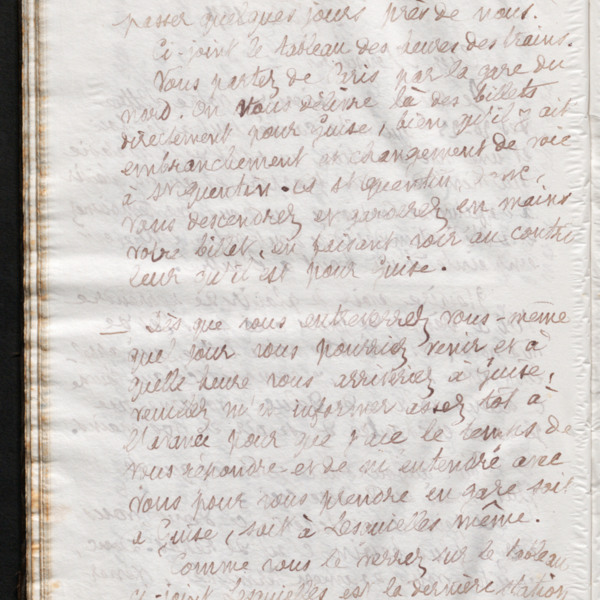 passer quelques jours près de nous.
Ci-joint le tableau des heures des trains.
Vous partez de Paris par la gare du
nord. On vous délivre là des billets
directement pour Guise, bien qu'il y ait
embranchement et changement de voie
à St quentin. a St quentin donc,
vous descendrez et garderez en mains
votre billet, en faisant voir au contro
leur qu'il est pour Guise.
— Dès que vous entreverrez vous-même
quel jour vous pourriez venir et à
quelle heure vous arriveriez a Guise,
veuillez m'en informer assez tôt à
l'avance pour que j'aie le temps de
vous répondre et de m'entendre avec
vous pour vous prendre en gare soit
a Guise, soit à Lesquielles même.
Comme vous le verrez sur le tableau
ci-joint Lesquielles est la dernière station